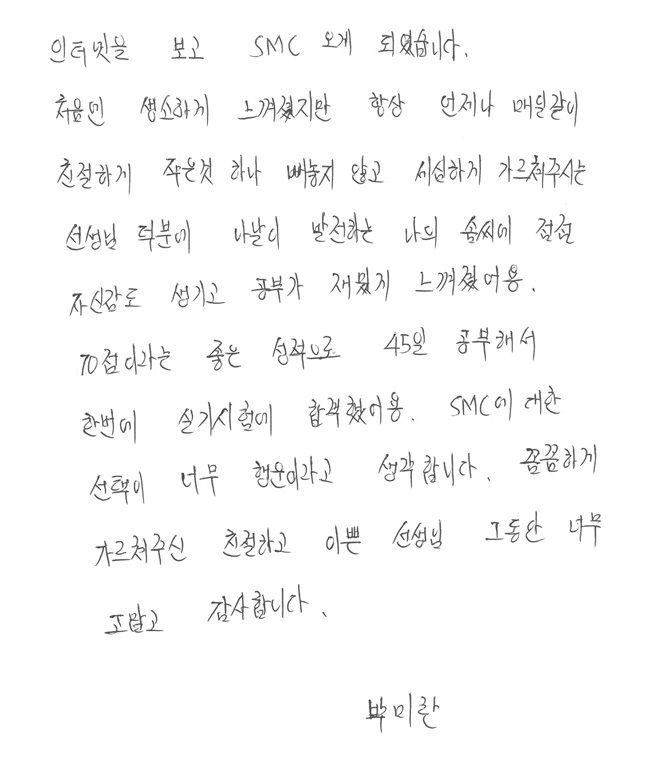 인터넷을 보고 SMC 오게 되었습니다.
처음엔 생소하게 느껴졌지만 항상 언제나 매일같이
친절하게 작은것 하나 빼놓지 않고 세심하게 가르쳐주시는
선생님 덕분에 나날이 발전하는 나의 솜씨에 점점
자신감도 생기고 공부가 재밌게 느껴졌어용.
70점이라는 좋은 성적으로 45일 공부해서
한번에 실기시험에 합격했어용. SMC에 대한
선택이 너무 행운이라고 생각합니다. 꼼꼼하게
가르쳐주신 친절하고 이쁜 선생님 그동안 너무
고맙고 감사합니다.
박미란